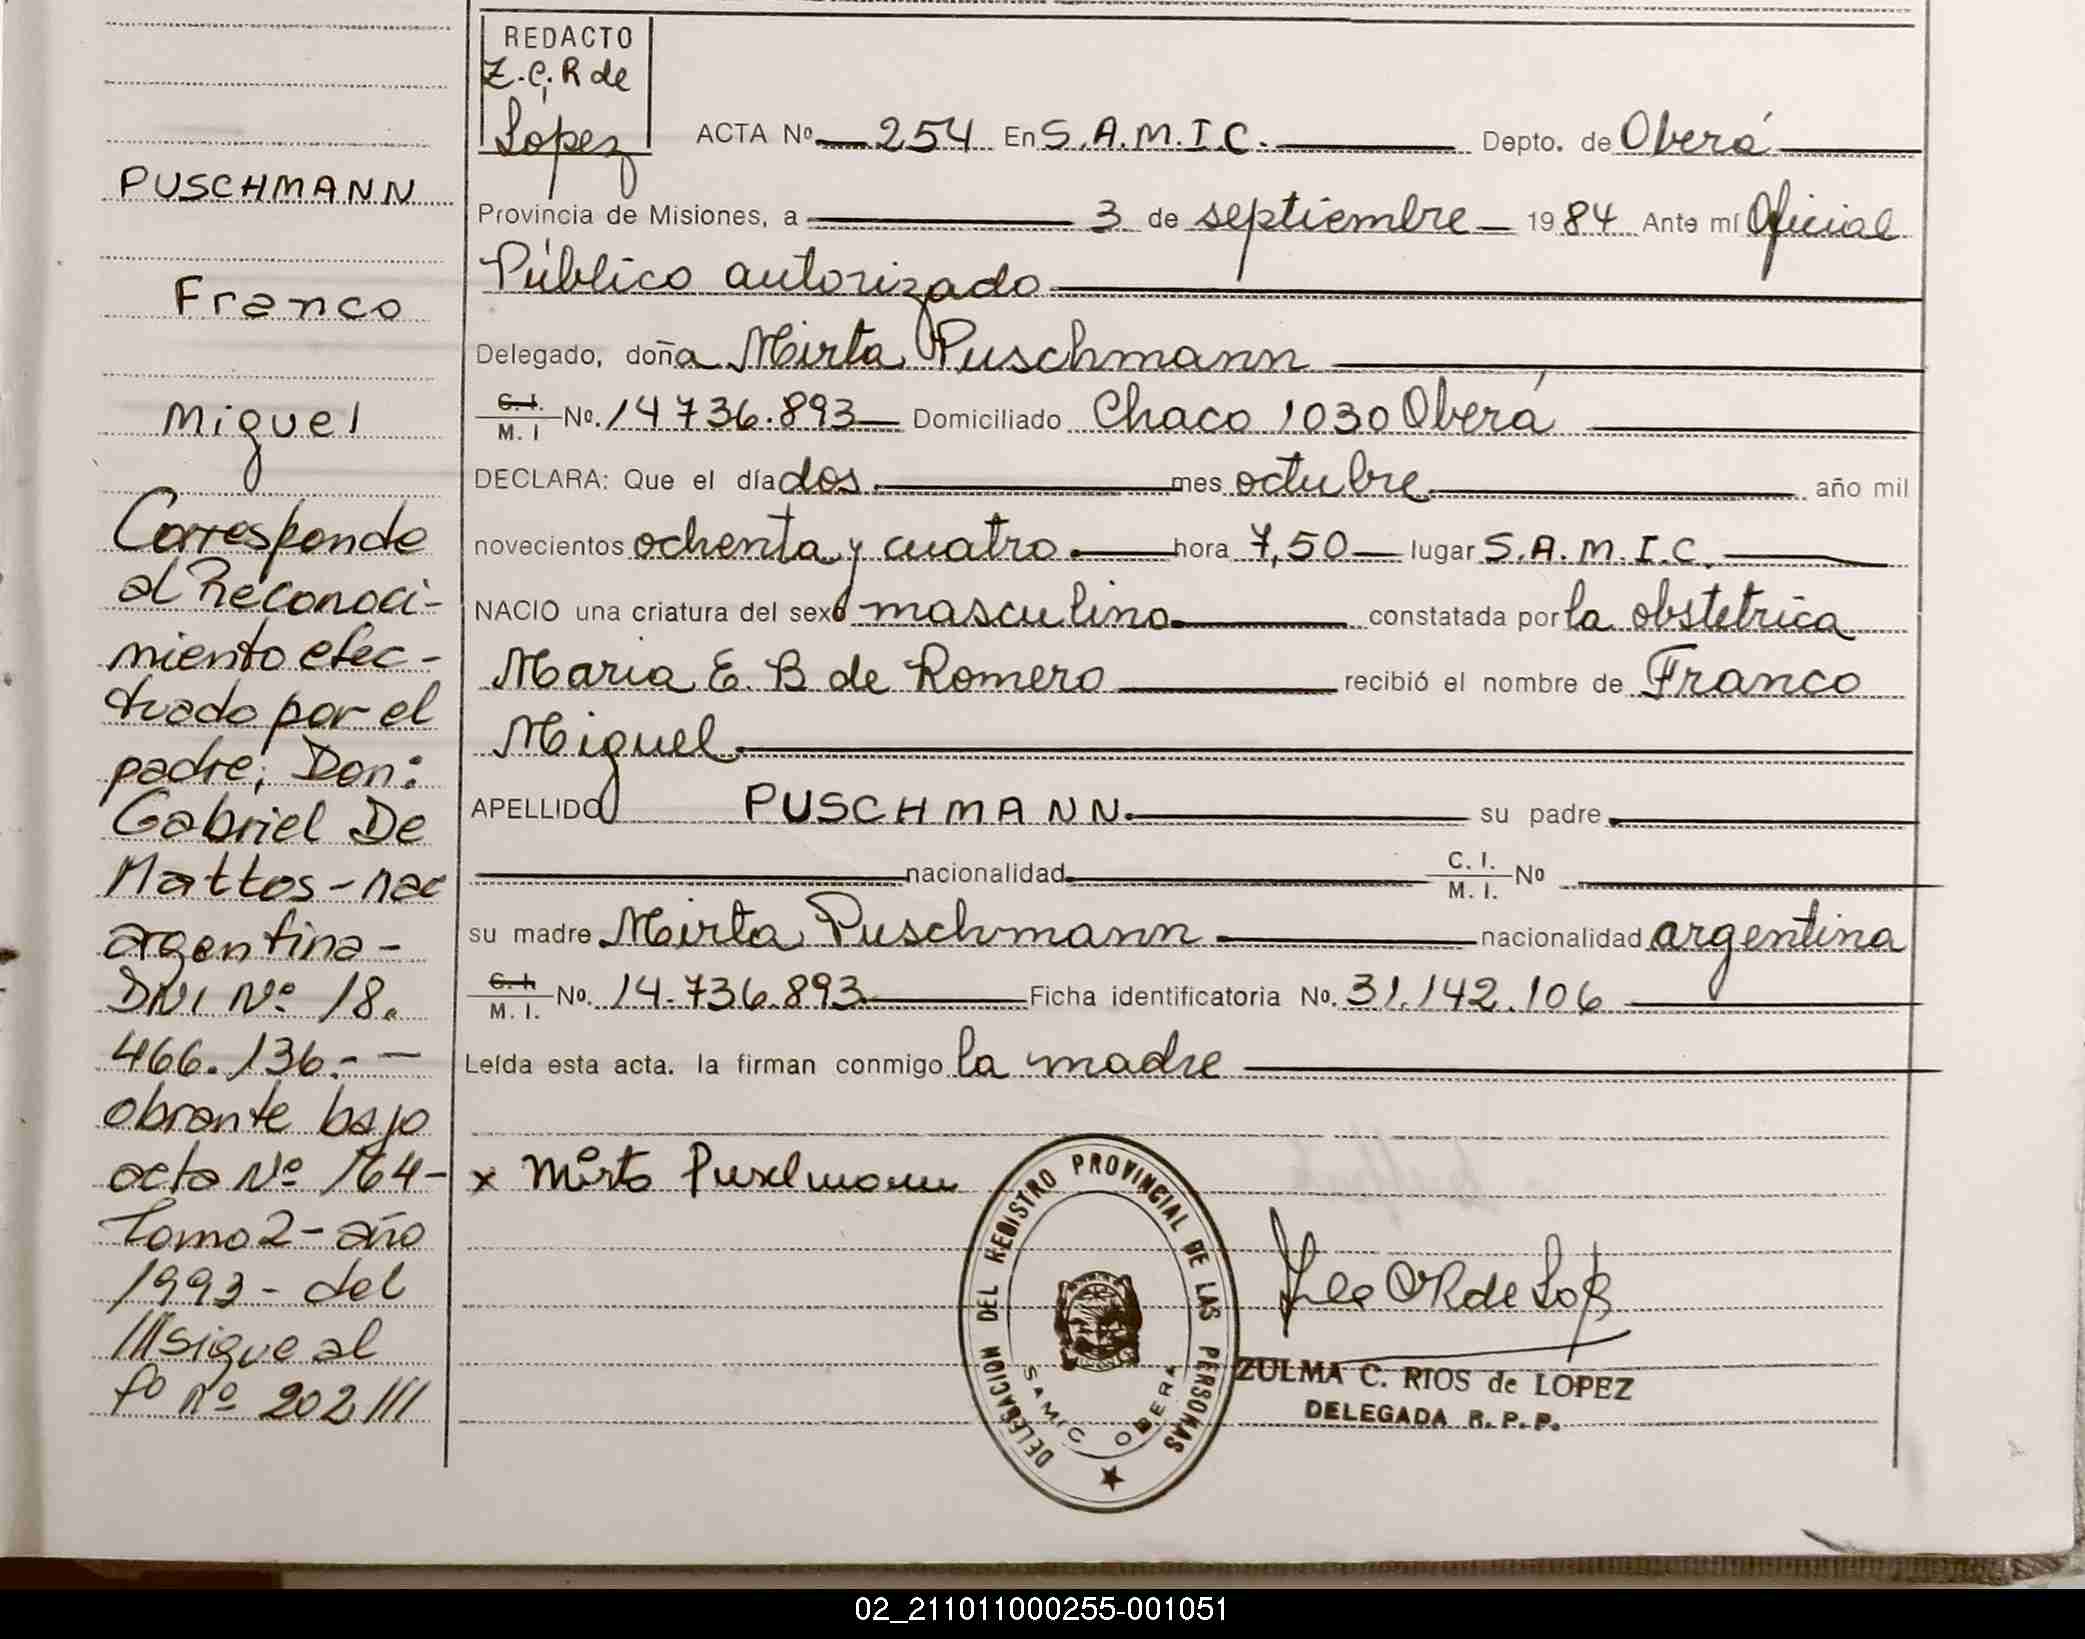 REDACTO
Z.C. R de
Lopez
ACTA Nº 254 En S.A.M.I.C. Depto. de Oberá
Provincia de Misiones, a 3 de septiembre 1984 Ante mí Oficial
Público autorizado
Delegado, doña Mirta Puschmann
C. I. M. I Nº. 14736.893 Domiciliado Chaco 1030 Oberá
DECLARA: Que el día dos mes octubre año mil
novecientos ochenta y cuatro hora 7,50 lugar S.A.M.I.C.
NACIO una criatura del sexo masculino constatada por la obstetrica
Maria E. B de Romero recibió el nombre de Franco
Miguel
APELLIDO PUSCHMANN su padre
nacionalidad C. I. M. I. Nº
su madre Mirta Puschmann nacionalidad argentina
C. I. M. I. Nº. 14.736.893 Ficha identificatoria Nº. 31.142.106
Leída esta acta. la firman conmigo la madre
x Mirta Puschmann
DELEGACION DEL REGISTRO PROVINCIAL DE LAS PERSONAS
SAMIC OBERA
ZULMA C. RIOS de LOPEZ
DELEGADA R. P. P.
PUSCHMANN
Franco
Miguel
Corresponde
al Reconoci-
miento efec-
tuado por el
padre; Don:
Gabriel De
Mattos - nac
argentina -
DNI Nº 18.
466.136.-
obrante bajo
acta Nº 164-
Tomo 2 - año
1993 - del
///sigue al
fº nº 202///
02_211011000255-001051